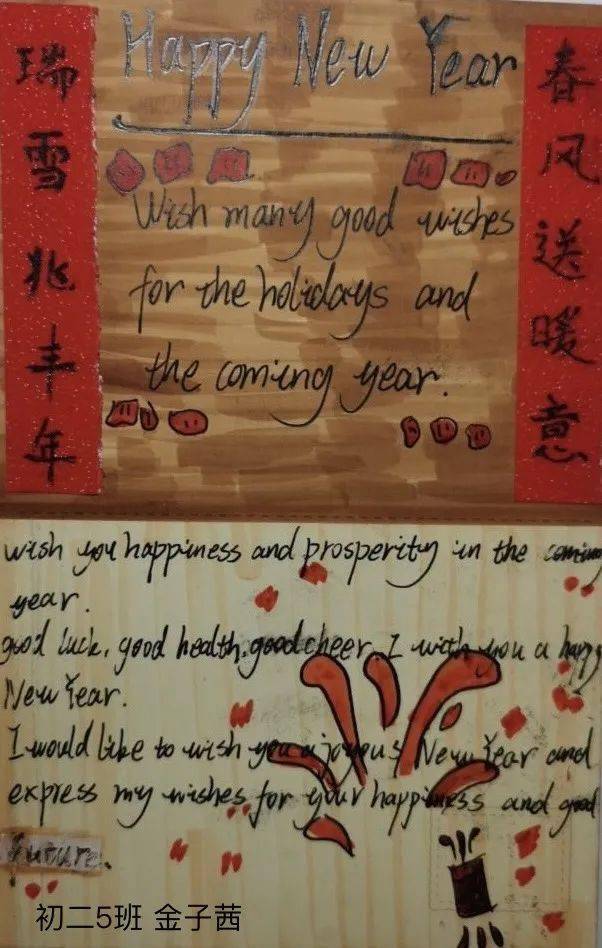 Happy New Year
春风送暖意
瑞雪兆丰年
Wish many good wishes
for the holidays and
the coming year.
wish you happiness and prosperity in the coming
year.
good luck, good health, good cheer. I wish you a happy
New Year.
I would like to wish you a joyous New Year and
express my wishes for your happiness and good
future.
初二5班 金子茜